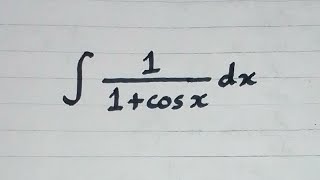 ∫ 1/(1+cos x) dx